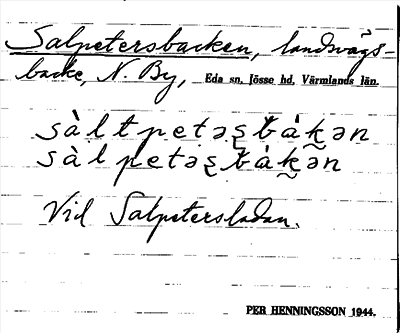 Salpetersbacken, landsvägs-
backe, N. By, Eda sn, Jösse hd, Värmlands län.
sàltpetəʂbák̰ən
sàlpetəʂbák̰ən
Vid Salpetersladan.
PER HENNINGSSON 1944.